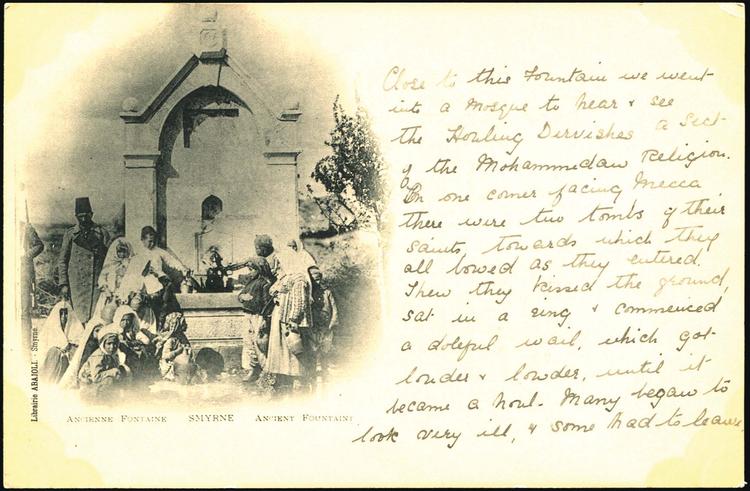 Close to this Fountain we went
into a Mosque to hear & see
the Howling Dirvishes a Sect
of the Mohammedan Religion.
In one corner facing Mecca
there were two tombs of their
saints, towards which they
all bowed as they entered.
Then they kissed the ground,
sat in a ring & commenced
a doleful wail, which got
louder & lowder, until it
became a howl. Many began to
look very ill, & some had to leave.
Librairie ABAJOLI. - Smyrne
ANCIENNE FONTAINE SMYRNE ANCIENT FOUNTAINE